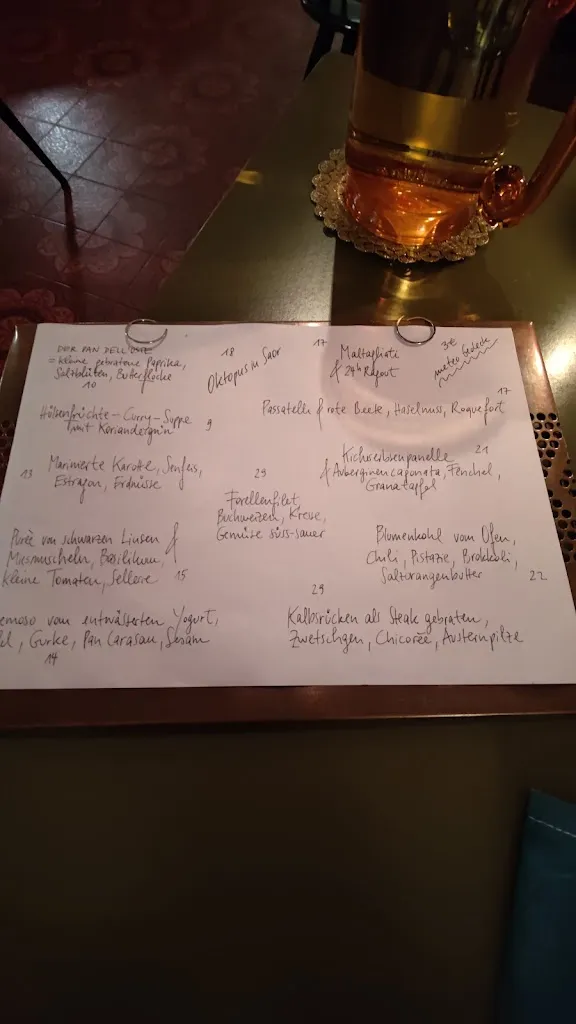 PAN DELL'OSTE
= kleine gebratene Paprika,
Salzblüten, Butterflocke
10
18
Oktopus in Saor
17
Maltagliate
& 24h Ragout
3€
Hülsenfrüchte-Curry-Suppe
mit Koriandergrün
9
17
Passatelli & rote Beete, Haselnuss, Roquefort
13
Marinierte Karotte, Senfeis,
Estragon, Erdnüsse
29
Forellenfilet,
Buchweizen, Kresse,
Gemüse süss-sauer
21
Kichererbsenpanelle
& Auberginencaponata, Fenchel,
Granatapfel
Püree von schwarzen Linsen &
Miesmuscheln, Basilikum,
kleine Tomaten, Sellerie
15
Blumenkohl vom Ofen,
Chili, Pistazie, Brokkoli,
Salzorangenbutter
22
vom entwässerten Yogurt,
Gurke, Pan Carasau, Sesam
14
29
Kalbsrücken als Steak gebraten,
Zwetschgen, Chicorée, Austernpilze